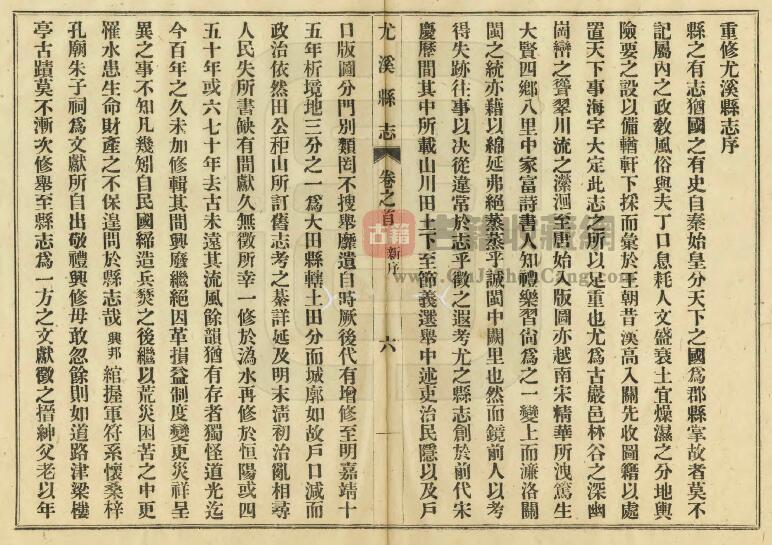 重修尤溪縣志序
縣之有志猶國之有史自秦始皇分天下之國為郡縣掌故者莫不
記屬內之政教風俗與夫丁口息耗人文盛衰土宜燥濕之分地輿
險要之設以備輶軒下採而彙於王朝昔漢高入關先收圖籍以處
置天下事海宇大定此志之所以足重也尤為古巖邑林谷之深幽
崗巒之聳翠川流之瀠洄至唐始入版圖亦越南宋精華所洩篤生
大賢四鄉八里中家富詩書人知禮樂習尚為之一變上而濂洛關
閩之統亦藉以綿延弗絕蒸蒸乎誠閩中闕里也然而鏡前人以考
得失跡往事以決從違常於志乎徵之遐考尤之縣志創於前代宋
慶歷間其中所載山川田土下至節義選舉中述吏治民隱以及戶
尤溪縣志
卷之首 新序
六
口版圖分門別類罔不搜舉靡遺自時厥後代有增修至明嘉靖十
五年析境地三分之一為大田縣轄土田分而城廓如故戶口減而
政治依然田公秬山所訂舊志考之綦詳延及明末淸初治亂相尋
人民失所書缺有間獻久無徵所幸一修於溈水再修於恒陽或四
五十年或六七十年去古未遠其流風餘韻猶有存者獨怪道光迄
今百年之久未加修輯其間興廢繼絕因革損益制度變更災祥呈
異之事不知凡幾矧自民國締造兵燹之後繼以荒災困苦之中更
罹水患生命財產之不保遑問於縣志哉興邦綰握軍符系懷桑梓
孔廟朱子祠為文獻所自出敬禮興修毋敢忽餘則如道路津梁樓
亭古蹟莫不漸次修舉至縣志為一方之文獻徵之搢紳父老以年
古籍
古籍收藏網